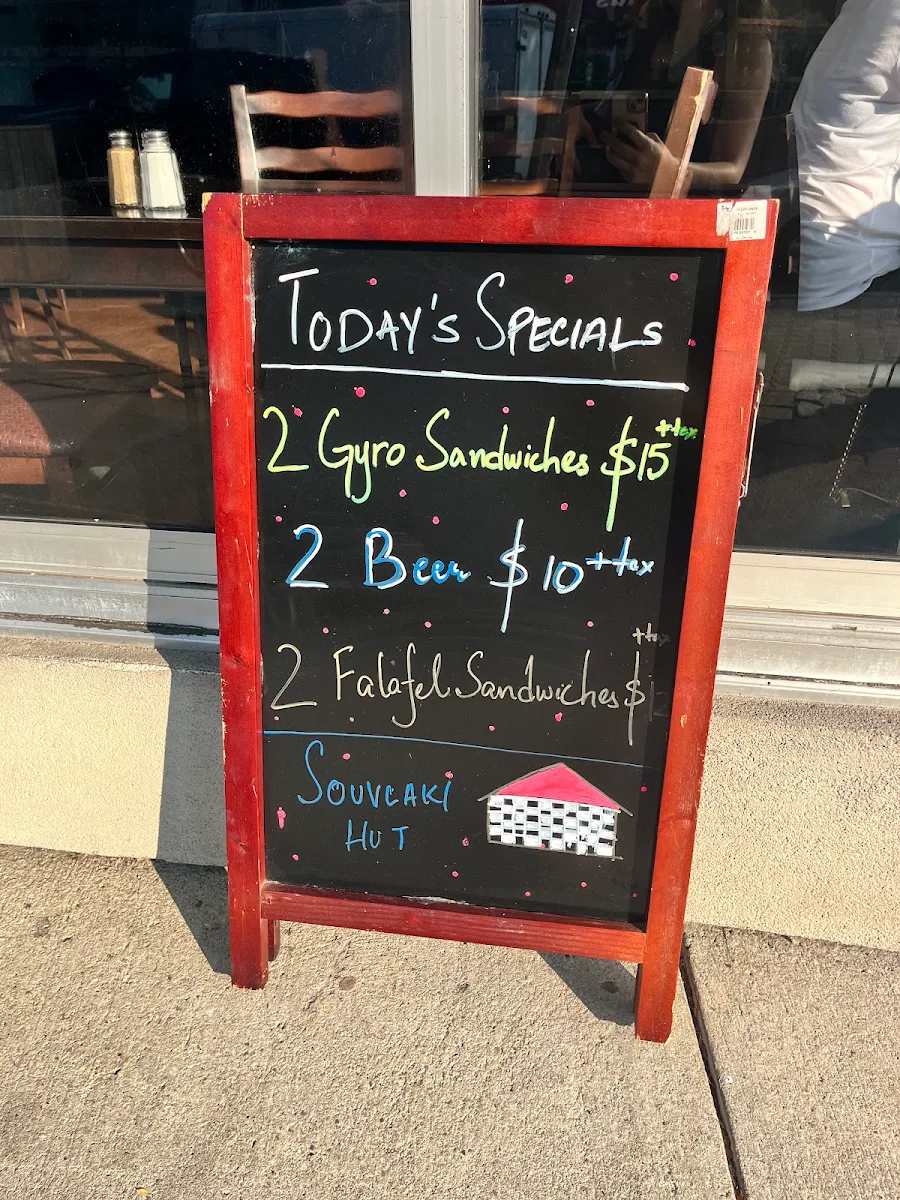 Today's Specials
2 Gyro Sandwiches $15 +tax
2 Beer $10 +tax
2 Falafel Sandwiches $12 +tax
Souvlaki
Hut